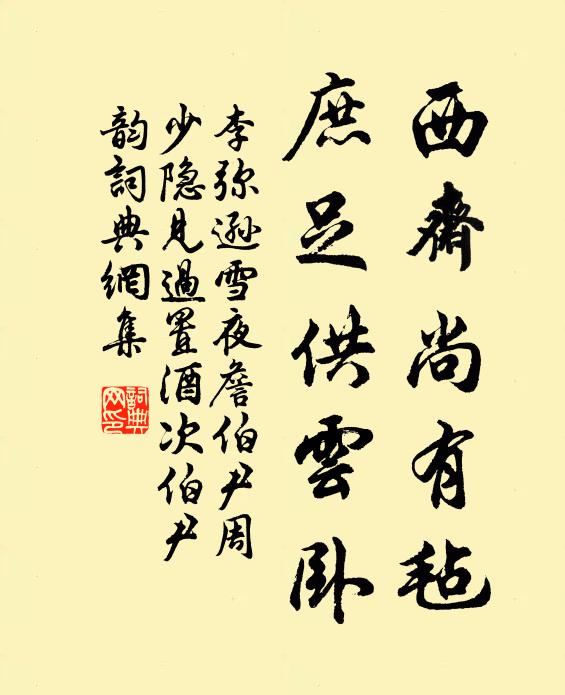 西齋尚有毡
庶足供雲卧
李弥遜雪夜詹伯尹周
少隐見過置酒次伯尹
韵詞典網集
詞典网印